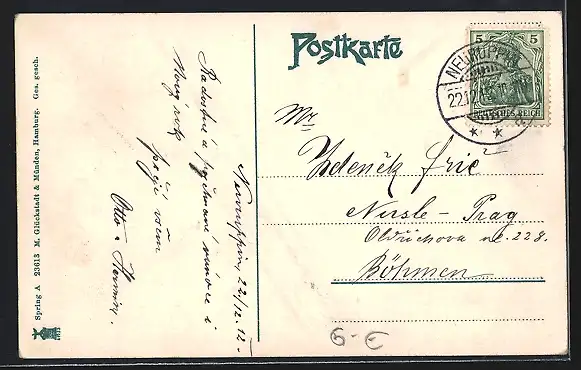 Postkarte
5 5
NEURUPPIN
22.12.
DEUTSCHES REICH
Mr
Zdeněk Fric
Nusle-Prag
Oldřichova nc. 228.
Böhmen
G-E
Neuruppin, 22/12. 12.
Radostné a vánoce i
Nový rok
přejí všem
Otto a
Spring A 23613 M. Glückstadt & Münden, Hamburg. Ges. gesch.